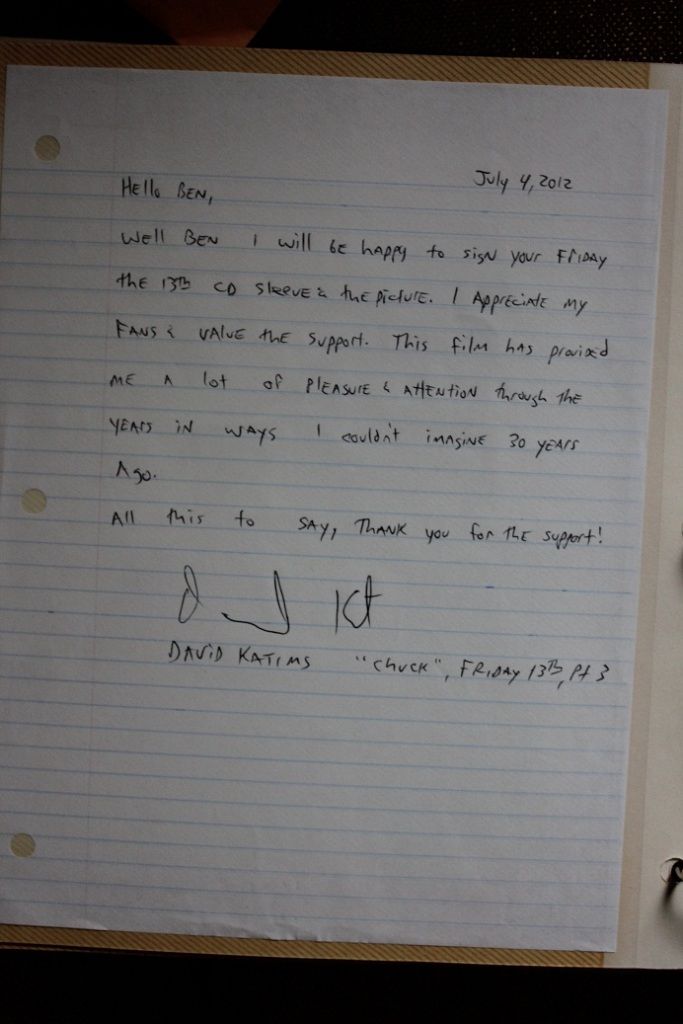 July 4, 2012
Hello BEN,
Well BEN I will be happy to sign your Friday
the 13th CD sleeve & the picture. I Appreciate my
FANS & value the support. This film has provised
me A lot of pleasure & attention through the
years in ways I couldn't imagine 30 years
Ago.
All this to say, Thank you for the support!
David Kat
DAVID KATIMS "Chuck", FRIDAY 13TH, Pt 3